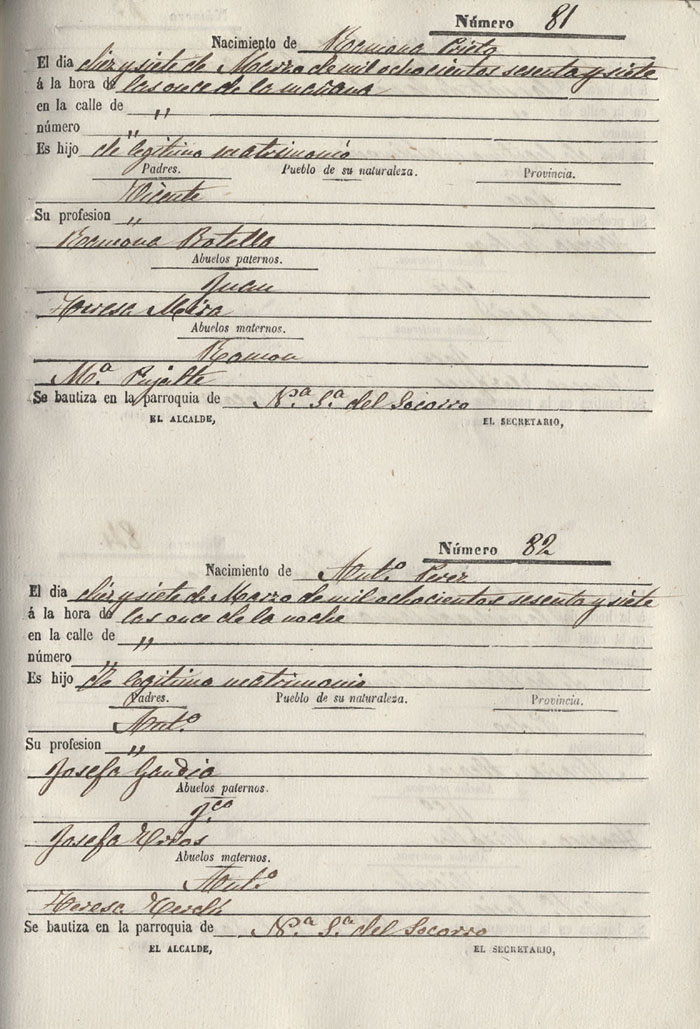 Número 81
Nacimiento de Ramona Prieto
El dia diez y siete de Marzo de mil ochocientos sesenta y siete
á la hora de las once de la mañana
en la calle de "
número "
Es hijo de legitimo matrimonio
Padres. Pueblo de su naturaleza. Provincia.
Vicente
Su profesion "
Ramona Botella
Abuelos paternos.
Juan
Teresa Mira
Abuelos maternos.
Ramon
Mª Pujalte
Se bautiza en la parroquia de Nª Sª del Socorro
EL ALCALDE, EL SECRETARIO,
Número 82
Nacimiento de Antº Perez
El dia diez y siete de Marzo de mil ochocientos sesenta y siete
á la hora de las once de la noche
en la calle de "
número "
Es hijo de legitimo matrimonio
Padres. Pueblo de su naturaleza. Provincia.
Antº
Su profesion "
Josefa Gandia
Abuelos paternos.
Josefa
Abuelos maternos.
Antº
Teresa
Se bautiza en la parroquia de Nª Sª del Socorro
EL ALCALDE, EL SECRETARIO,